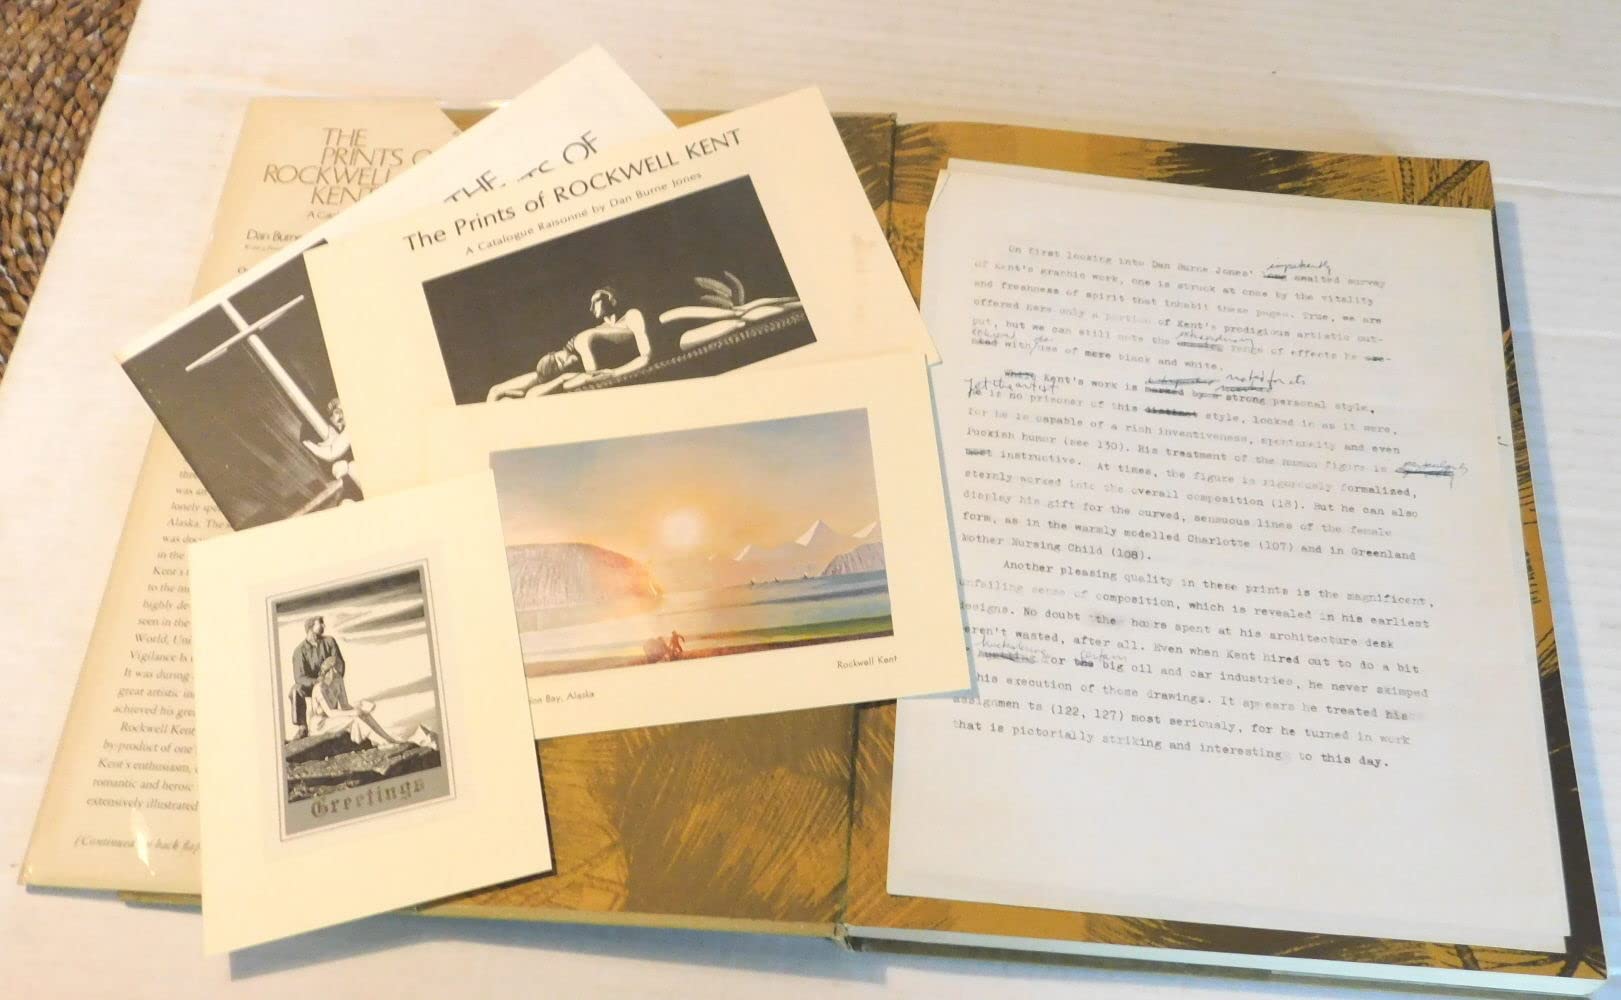 THE
PRINTS O
ROCKWELL
KENT
Dan Burne
was an
lonely spe
Alaska. The
was docu
in the
Kent's
to the m
highly de
seen in the
World, Uni
Vigilance Is
It was during
great artistic in
achieved his grea
Rockwell Kent
by-product of one
Kent's enthusiasm,
romantic and heroic
extensively illustrated
(Continued on back flap)
THE
OF
The Prints of ROCKWELL KENT
A Catalogue Raisonné by Dan Burne Jones
Rockwell Kent
on Bay, Alaska
Greetings
On first looking into Dan Burne Jones' impatiently awaited survey
of Kent's graphic work, one is struck at once by the vitality
and freshness of spirit that inhabit these pages. True, we are
offered here only a portion of Kent's prodigious artistic out-
put, but we can still note the range of effects he
with use of mere black and white.
Kent's work is noted for its strong personal style.
Yet the artist is no prisoner of this distinct style, locked in as it were,
for he is capable of a rich inventiveness, spontaneity and even
Puckish humor (see 130). His treatment of the human figure is particularly
most instructive. At times, the figure is rigorously formalized,
sternly worked into the overall composition (18). But he can also
display his gift for the curved, sensuous lines of the female
form, as in the warmly modelled Charlotte (107) and in Greenland
Mother Nursing Child (108).
Another pleasing quality in these prints is the magnificent,
unfailing sense of composition, which is revealed in his earliest
designs. No doubt the hours spent at his architecture desk
weren't wasted, after all. Even when Kent hired out to do a bit
for the certain big oil and car industries, he never skimped
his execution of those drawings. It appears he treated his
assignmen ts (122, 127) most seriously, for he turned in work
that is pictorially striking and interesting to this day.